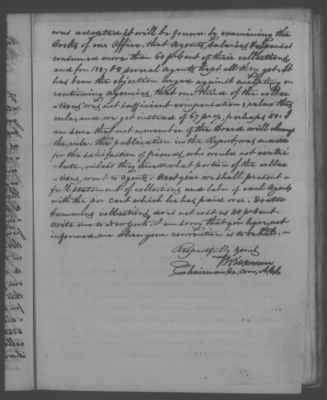 was adopted, it will be found by examining the
books of our Office, that Agents Salaries & Expenses
consumed more than 60 pr Cent of their collections
and for 1837 & 8 several Agents kept all they got. It
has been the objection urged against accepting or
continuing agencies, that one third of the collec-
tions, was not sufficient compensation; relax this
rule, and we get instead of 67 prcg. perhaps 30. I
am sure, that not a member of the Board will change
the rule. The publication in the Report, was made
for the satisfaction of pious, who would not contri-
bute, unless they knew what portion of the collec-
tions, went to agents. Next year we shall present a
full statement of collections and labor of each Agent
with the per cent which he has paid over. Doctor
collections does not cost us 20 pr cent.
write me to New York. I am sorry that you have not
informed me when your convention is to be held.
Respectfully yours

Chairman Ex. Com.